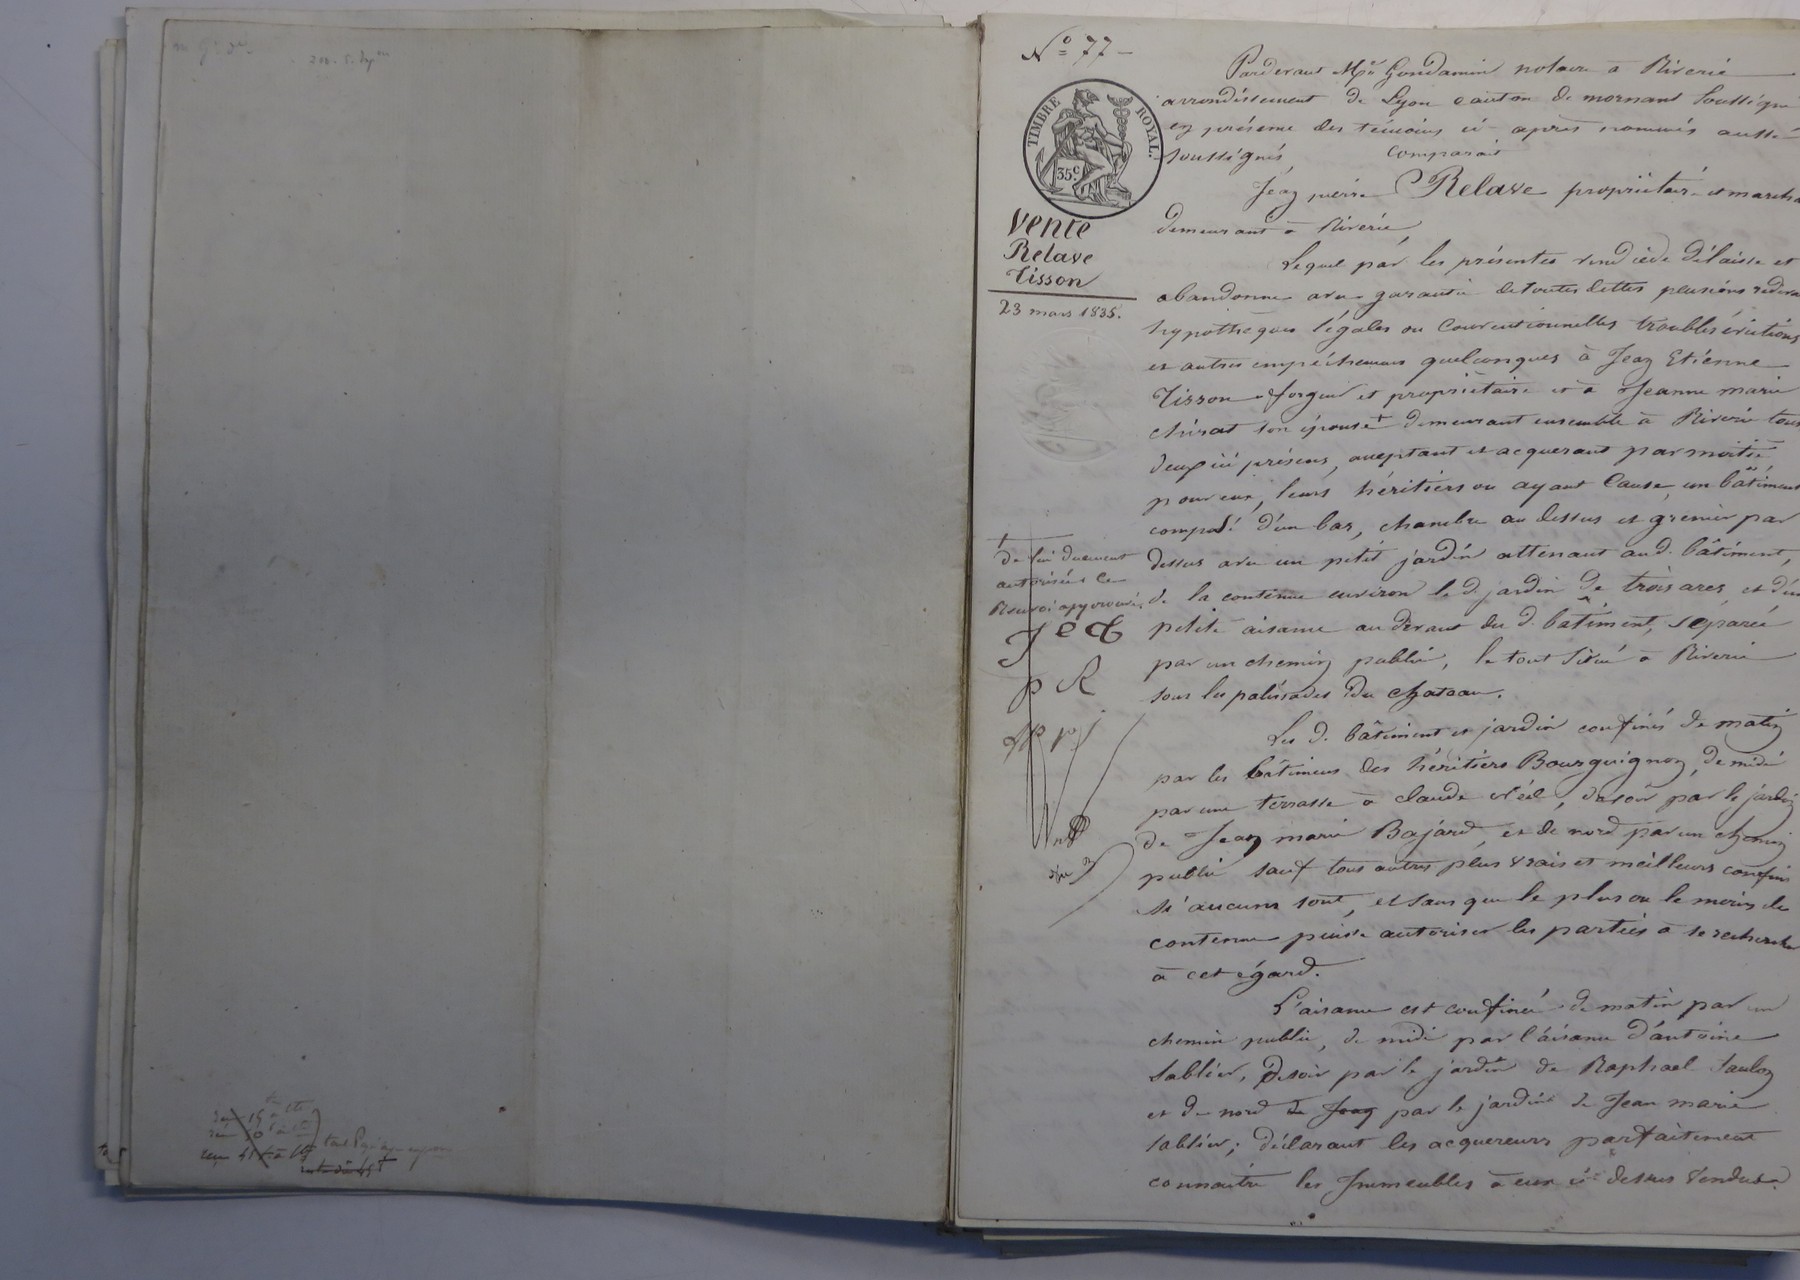 N° 77
TIMBRE ROYAL.
35c.
Vente
Relave
Tisson
23 mars 1835.
Pardevant Me Gondamin notaire à Riverie
arrondissement de Lyon canton de mornant soussigné
en présence des témoins ci-après nommés aussi
soussignés, comparait
Jean pierre Relave propriétaire et marcha
demeurant à Riverie,
Lequel par les présentes vend cède délaisse et
abandonne avec garantie de toutes dettes pensions redeva
hypothèques légales ou Conventionnelles troubles évictions
et autres empéchemens quelconques à Jean Etienne
Tisson forgeur et propriétaire et à Jeanne marie
chirat son épouse + demeurant ensemble à Riverie tous
deux ici présens, acceptant et acquerant par moitié
pour eux, leurs héritiers ou ayant Cause, un bâtiment
composé d'un bas, chambre au dessus et grenier par
dessus avec un petit jardin attenant aud. bâtiment,
de la contenue environ le d. jardin de trois ares, et d'un
petite aisance au devant du d. bâtiment, séparée
par un chemin public, le tout situé à Riverie
sous les palissades du chateau.
+ de lui duement
autorisée ce
Renvoi approuvé
J E T
p R
Les d. bâtiment et jardin confinés de matin
par les bâtimens des héritiers Bourguignon, de midi
par une terrasse à claude, de soir par le jardin
de Jean marie Bajard, et de nord par un chemin
public sauf tous autres plus vrais et meilleurs confins
si aucuns sont, et sans que le plus ou le moins de
contenue puisse autoriser les parties à se recherche
à cet égard.
L'aisance est confinée de matin par un
chemin public, de midi par l'aisance d'antoine
Sablier, de soir par le jardin de Raphael
et de nord de Jean par le jardin de Jean marie
Sablier; déclarant les acquereurs parfaitement
connaitre les Immeubles à eux ci-dessus vendus.